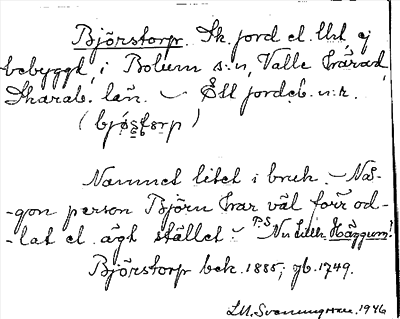 Björstorp. Sk. jord el. lht ej
bebyggt, i Bolum s:n, Valle härad,
Skarab. län. – Ett jordeb. n:r.
(bjøstorp)
Namnet litet i bruk. – Nå-
-gon person Björn har väl förr od-
-lat el. ägt stället. – P.S. Nu tillh. Häggum!
Björstorp bek. 1885; gb. 1749.
1946